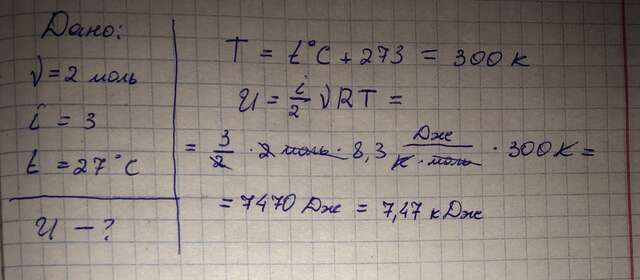 Дано:
ν = 2 моль
i = 3
t = 27°C
U - ?
T = t°C + 273 = 300 K
U = i/2 νRT =
= 3/2 · 2 моль · 8,3 Дж/К·моль · 300 K =
= 7470 Дж = 7,47 кДж